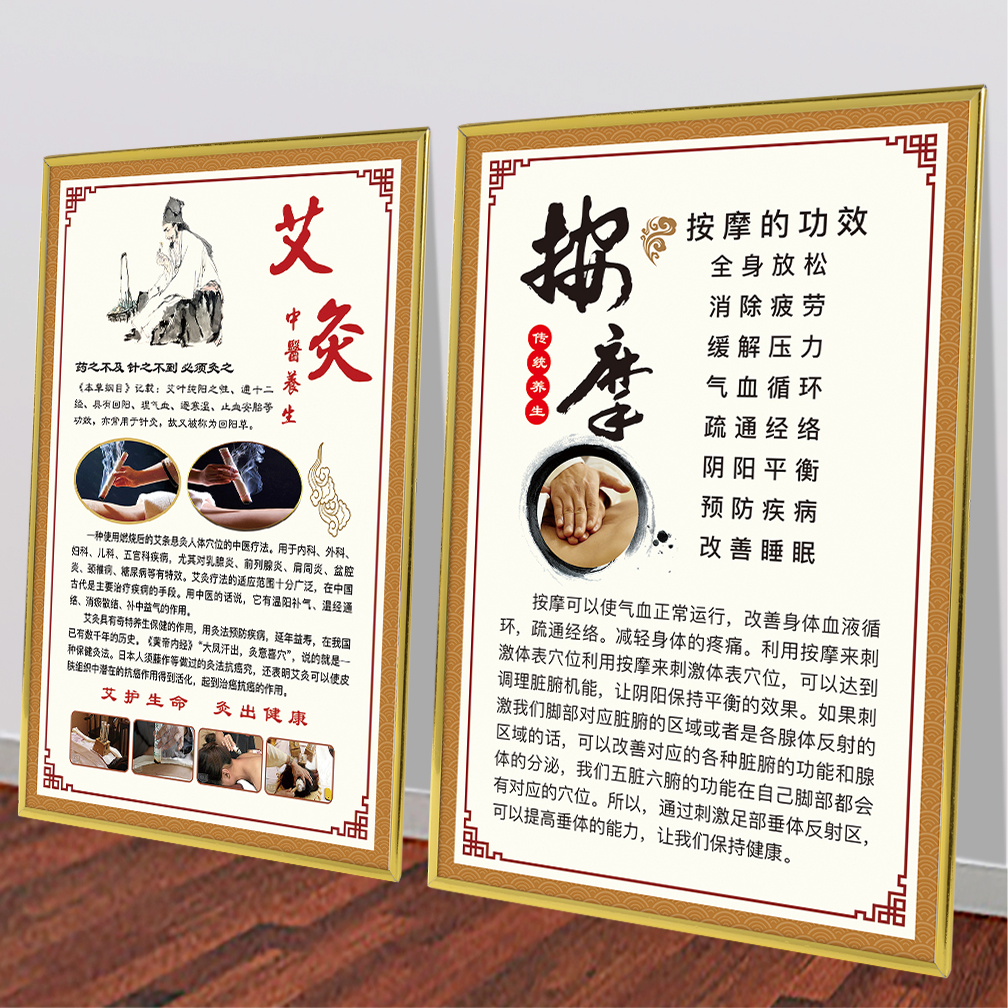 艾灸
中醫養生
药之不及 针之不到 必须灸之
《本草纲目》记载：艾叶纯阳之性、通十二
经、具有回阳、理气血、逐寒湿、止血安胎等
功效，亦常用于针灸，故又被称为回阳草。
一种使用燃烧后的艾条悬灸人体穴位的中医疗法。用于内科、外科、
妇科、儿科、五官科疾病，尤其对乳腺炎、前列腺炎、肩周炎、盆腔
炎、颈椎病、糖尿病等有特效。艾灸疗法的适应范围十分广泛，在中国
古代是主要治疗疾病的手段。用中医的话说，它有温阳补气、温经通
络、消瘀散结、补中益气的作用。
艾灸具有奇特养生保健的作用，用灸法预防疾病，延年益寿，在我国
已有数千年的历史。《黄帝内经》“大风汗出，灸意喜穴”，说的就是一
种保健灸法。日本人须藤作等做过的灸法抗癌究，还表明艾灸可以使皮
肤组织中潜在的抗癌作用得到活化，起到治癌抗癌的作用。
艾护生命 灸出健康
按摩
传统养生
按摩的功效
全身放松
消除疲劳
缓解压力
气血循环
疏通经络
阴阳平衡
预防疾病
改善睡眠
按摩可以使气血正常运行，改善身体血液循
环，疏通经络。减轻身体的疼痛。利用按摩来刺
激体表穴位利用按摩来刺激体表穴位，可以达到
调理脏腑机能，让阴阳保持平衡的效果。如果刺
激我们脚部对应脏腑的区域或者是各腺体反射的
区域的话，可以改善对应的各种脏腑的功能和腺
体的分泌，我们五脏六腑的功能在自己脚部都会
有对应的穴位。所以，通过刺激足部垂体反射区，
可以提高垂体的能力，让我们保持健康。